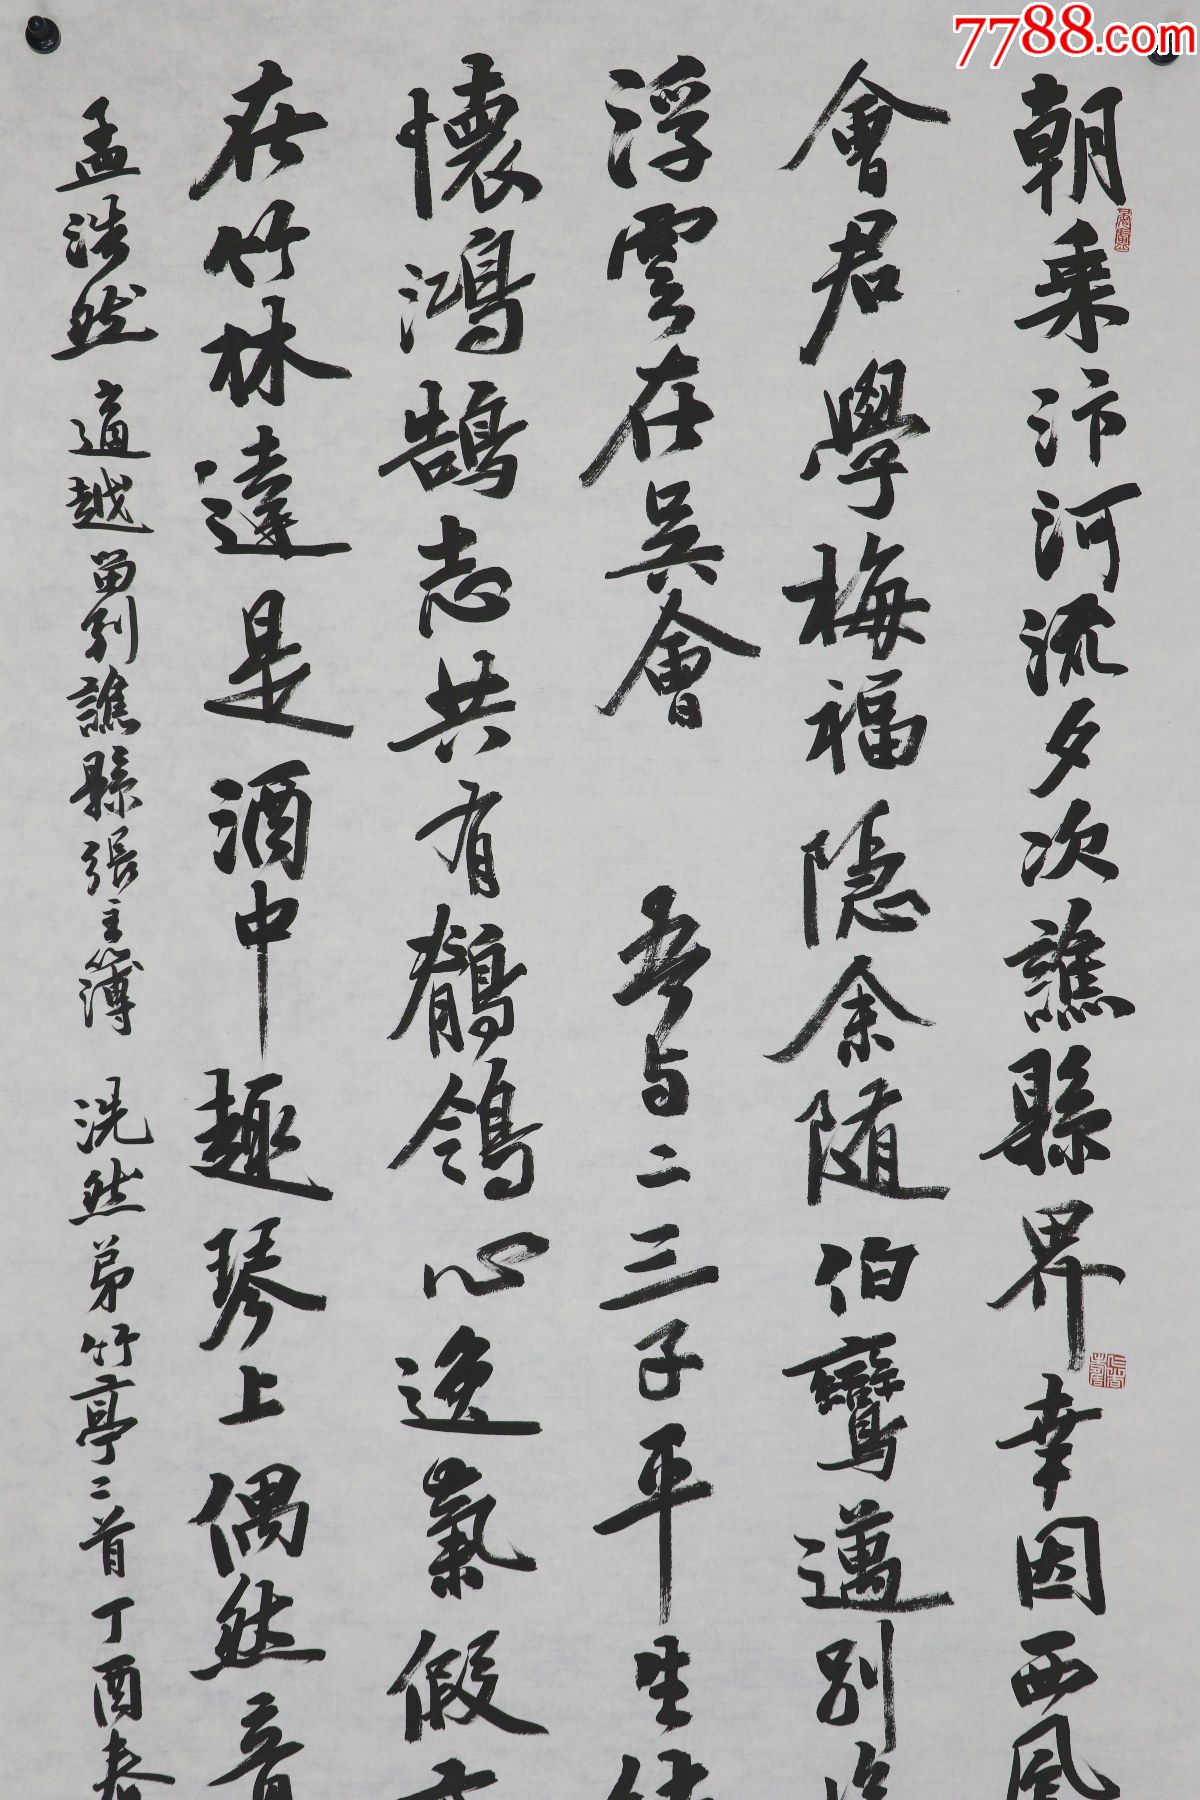 7788.com
朝乗汴河流夕次譙縣界幸因西風
會君學梅福隐余随伯鸞邁别
浮雲在吴會 吾与二三子平生结
懷鴻鵠志共有鶺鴒心逸氣假
在竹林達是酒中趣琴上偶然音
孟浩然 適越留别譙縣張主簿 洗然弟竹亭二首丁酉春